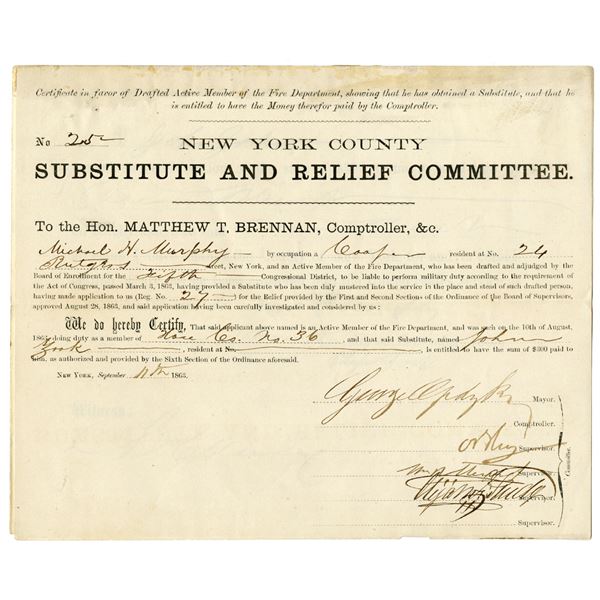 Certificate in favor of Drafted Active Member of the Fire Department, showing that he has obtained a Substitute, and that he
is entitled to have the Money therefor paid by the Comptroller.
No 25
NEW YORK COUNTY
SUBSTITUTE AND RELIEF COMMITTEE.
To the Hon. MATTHEW T. BRENNAN, Comptroller, &c.
Michael H. Murphy by occupation a Cooper resident at No. 24
Rutgers Street, New York, and an Active Member of the Fire Department, who has been drafted and adjudged by the
Board of Enrollment for the Fifth Congressional District, to be liable to perform military duty according to the requirement of
the Act of Congress, passed March 3, 1863, having provided a Substitute who has been duly mustered into the service in the place and stead of such drafted person,
having made application to us (Reg. No. 27 for the Relief provided by the First and Second Sections of the Ordinance of the Board of Supervisors,
approved August 28, 1863, and said application having been carefully investigated and considered by us:
We do hereby Certify, That said applicant above named is an Active Member of the Fire Department, and was such on the 10th of August,
1863, doing duty as a member of Hose Co. No. 36, and that said Substitute, named John
Zook, resident at No. is entitled to have the sum of $300 paid to
him, as authorized and provided by the Sixth Section of the Ordinance aforesaid.
New York, September 11th 1863.
George Opdyke Mayor.
Comptroller.
Supervisor.
Supervisor.
Supervisor.
Supervisor.
Committee.